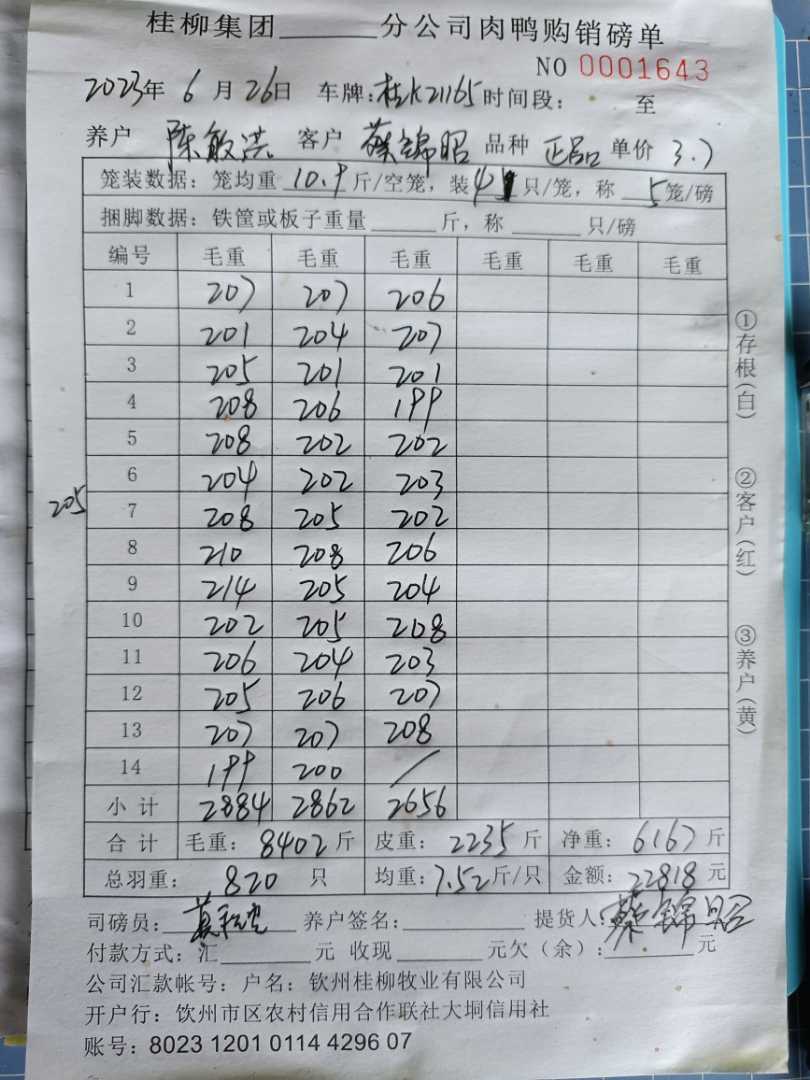 桂柳集团______分公司肉鸭购销磅单
NO 0001643
2023年 6月 26日 车牌:桂K21165 时间段: 至
养户 陈敏洪 客户 蔡锦昭 品种 正品 单价 3.7
笼装数据:笼均重 10.9 斤/空笼,装 4 只/笼,称 5 笼/磅
捆脚数据:铁筐或板子重量______斤,称______只/磅
编号 毛重 毛重 毛重 毛重 毛重 毛重
1 207 207 206
2 201 204 207
3 205 201 201
4 208 206 199
5 208 202 202
6 204 202 203
205
7 208 205 202
8 210 208 206
9 214 205 204
10 202 205 208
11 206 204 203
12 205 206 207
13 207 207 208
14 199 200 /
小计 2884 2862 2656
合计 毛重: 8402 斤 皮重: 2235 斤 净重: 6167 斤
总羽重: 820 只 均重: 7.52 斤/只 金额: 22818 元
司磅员: 养户签名:______ 提货人: 蔡锦昭
付款方式:汇______元 收现______元欠(余):______元
公司汇款帐号:户名:钦州桂柳牧业有限公司
开户行:钦州市区农村信用合作联社大垌信用社
账号:8023 1201 0114 4296 07
①存根(白) ②客户(红) ③养户(黄)